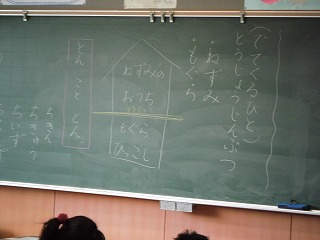 （でてくるひと）
とうじょうじんぶつ
・ねずみ
・もぐら
ねずみの
おうち
もぐら
ひっこし
とん こと とん
ちきん
ちきゅう
ちず